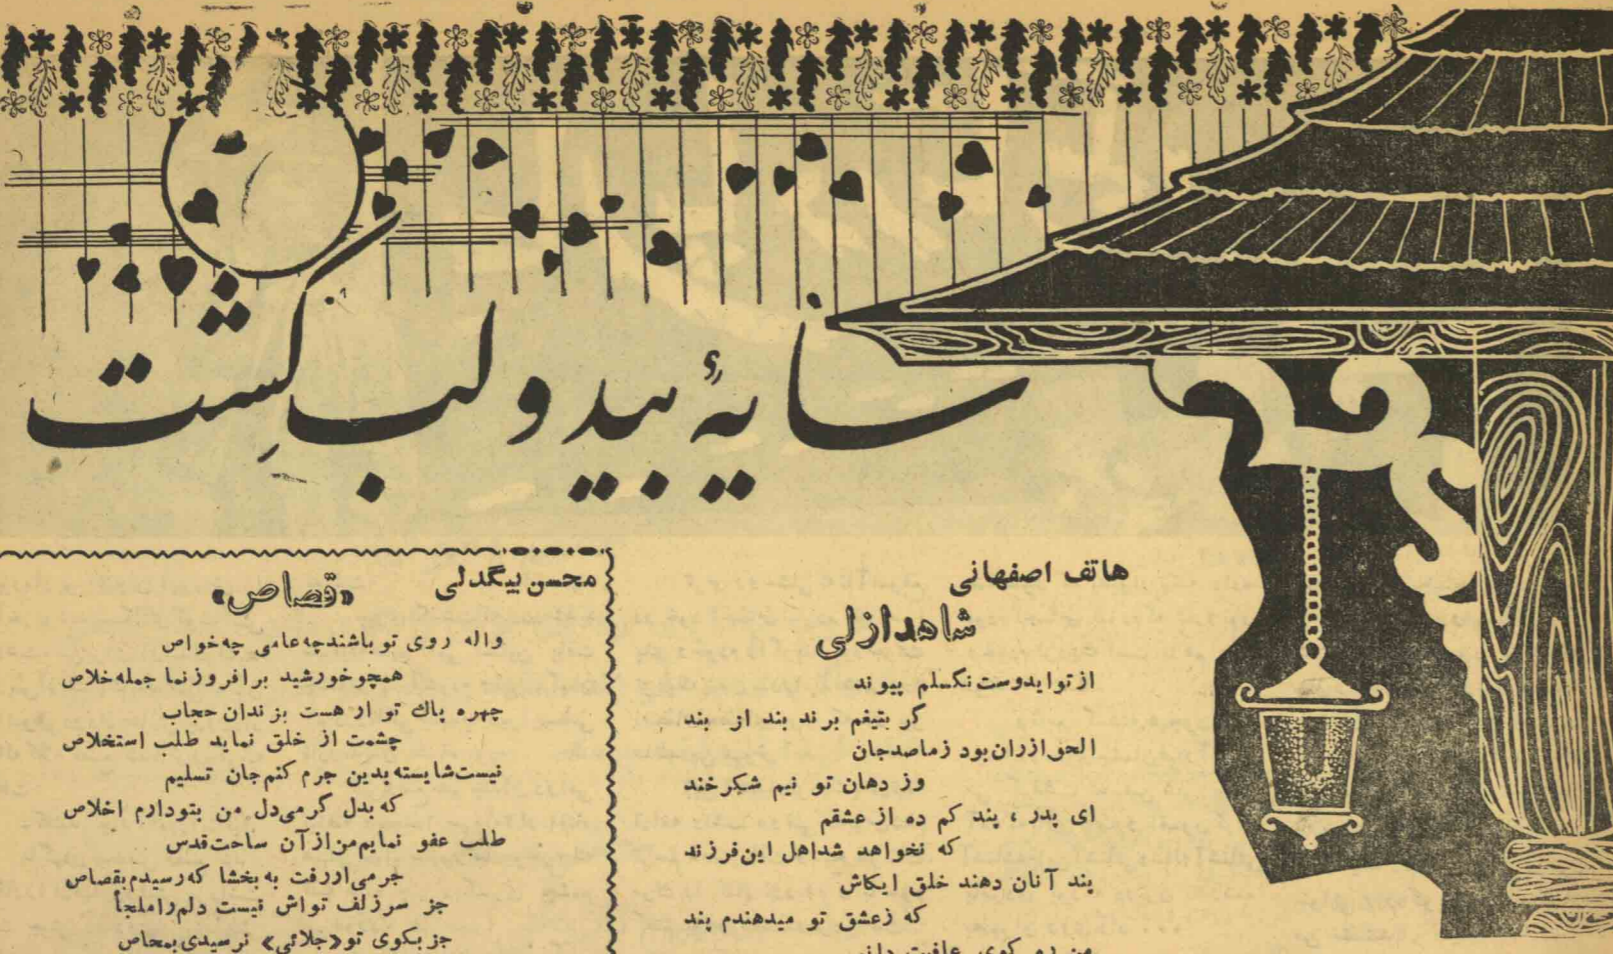 سایهٔ بید و لب کشت
هاتف اصفهانی
شاهد ازلی
از تو ایدوست نگسلم پیوند
گر بتیغم برند بند از بند
الحق ارزان بود زما صد جان
وز دهان تو نیم شکر خند
ای پدر ، پند کم ده از عشقم
که نخواهد شد اهل این فرزند
پند آنان دهند خلق ایکاش
که زعشق تو میدهندم پند
من ره کوی عافیت دانم
محسن بیگدلی
«قصاص»
واله روی تو باشند چه عامی چه خواص
همچو خورشید برافروز نما جمله خلاص
چهره پاك تو ار هست بزندان حجاب
چشمت از خلق نماید طلب استخلاص
نیست شایسته بدین جرم کنم جان تسلیم
که بدل گرمی دل من بتو دارم اخلاص
طلب عفو نمایم من از آن ساحت قدس
جرمی ار رفت به بخشا که رسیدم بقصاص
جز سر زلف تو اش نیست دلم را ملجأ
جز بکوی تو «جلائی» نرسیدی بمحاص